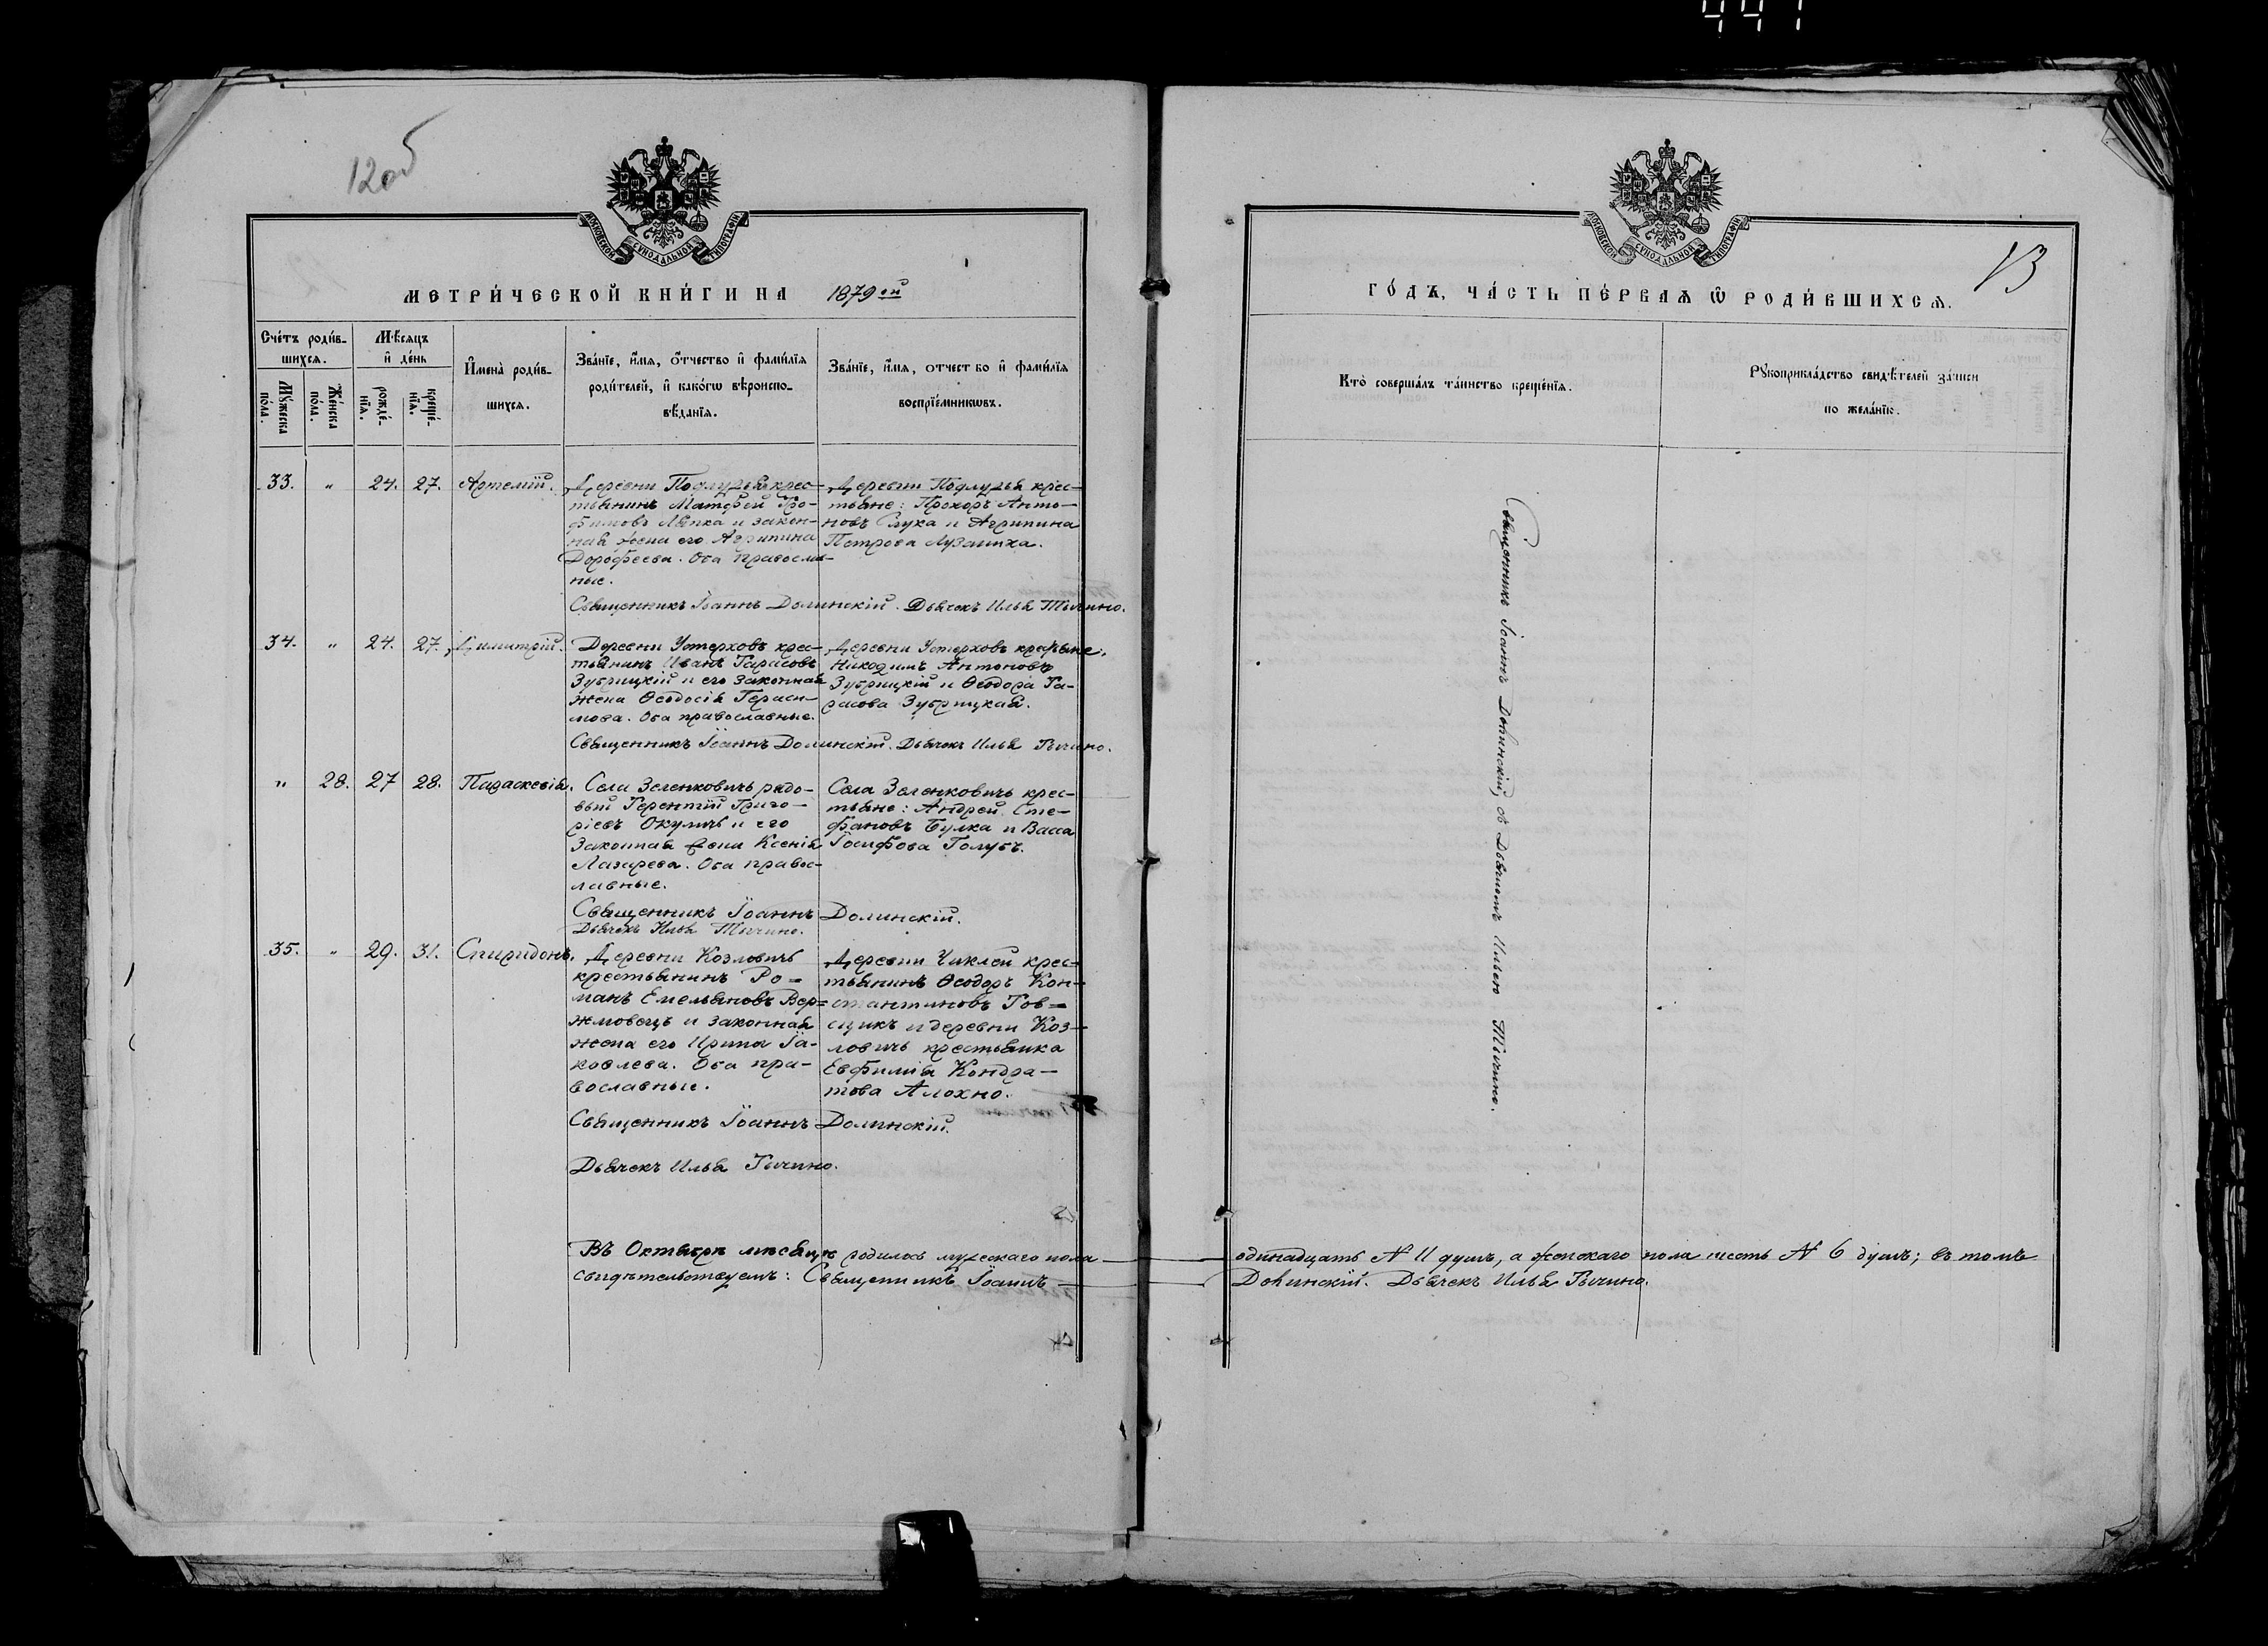 441
12об
МОСКОВСКОЙ СѴНОДАЛЬНОЙ ТИПОГРАФІИ
МЕТРИ́ЧЕСКОЙ КНИ́ГИ НА 1879 ой
Сче́тъ роди́в-
шихся.
Мѣ́сяцъ
и҆ де́нь
Мꙋ́жеска
по́ла.
Же́нска
по́ла.
рожде́-
нїѧ.
креще́-
нїѧ.
И҆мена̀ роди́в-
шихся.
Зва́нїе, и҆́мѧ, ѻ҆́тчество и҆ фами́лїѧ
роди́телей, и҆ како́гѡ вѣроиспо-
вѣ́данїѧ.
Зва́нїе, и҆́мѧ, отчест во и҆ фами́лїѧ
воспрїе́мникѡвъ.
33. " 24. 27. Артемій.
Деревни Подлузья крес-
тьянинъ Матфей Тро-
фимовъ Ляпка и закон-
ная жена его Агрипина
Дорофеева. Оба православ-
ные.
Деревни Подлузья крес-
тьяне: Прохоръ Анто-
новъ Слука и Агрипина
Петрова
Священникъ Іоаннъ Долинскій. Дьячекъ Илья Тычино.
34. " 24. 27. Димитрій.
Деревни Устерховъ крес-
тьянинъ Иванъ Тарасовъ
Зубрицкій и его законная
жена Ѳеодосія Гераси-
мова. Оба православные.
Деревни Устерховъ крестьяне:
Никодимъ Антоновъ
Зубрицкій и Ѳеодора Та-
расова Зубрицкая.
Священникъ Іоаннъ Долинскій. Дьячекъ Илья Тычино.
" 28. 27 28. Параскевія.
Села Зеленковичъ рядо-
вый Терентій Григо-
ріевъ Окуличъ и его
законная жена Ксенія
Лазарева. Оба правос-
лавные.
Села Зеленковичъ крес-
тьяне: Андрей Сте-
фановъ Булка и Васса
Іосифова Голубъ.
Священникъ Іоаннъ Долинскій.
Дьячекъ Илья Тычино.
35. " 29. 31. Спиридонъ.
Деревни Козловичъ
крестьянинъ Ро-
манъ Емельяновъ Вер-
жмовецъ и законная
жена его Ирина Іа-
ковлева. Оба пра-
вославные.
Деревни Чиклей крес-
тьянинъ Ѳеодоръ Кон-
стантиновъ Гов-
сщикъ и деревни Коз-
ловичъ крестьянка
Евфимія Кондра-
това Алохно.
Священникъ Іоаннъ Долинскій.
Дьячекъ Илья Тычино.
Въ Октябрѣ мѣсяцѣ родилось мужескаго пола
свидѣтельствуемъ: Священникъ Іоаннъ
13
МОСКОВСКОЙ СѴНОДАЛЬНОЙ ТИПОГРАФІИ
ГО́ДЪ, ЧА́СТЬ ПЕ́РВАѦ Ѡ҆ РОДИ́ВШИХСѦ.
Кто̀ соверша́лъ та́инство креще́нїѧ.
Рꙋкоприкла́дство свидѣ́телей за́писи
по жела́нїю.
Священникъ Іоаннъ Долинскій, съ Дьячкомъ Ильею Тычино.
одинадцать № 11 душъ, а женскаго пола шесть № 6 душъ; въ томъ
Долинскій. Дьячекъ Илья Тычино.